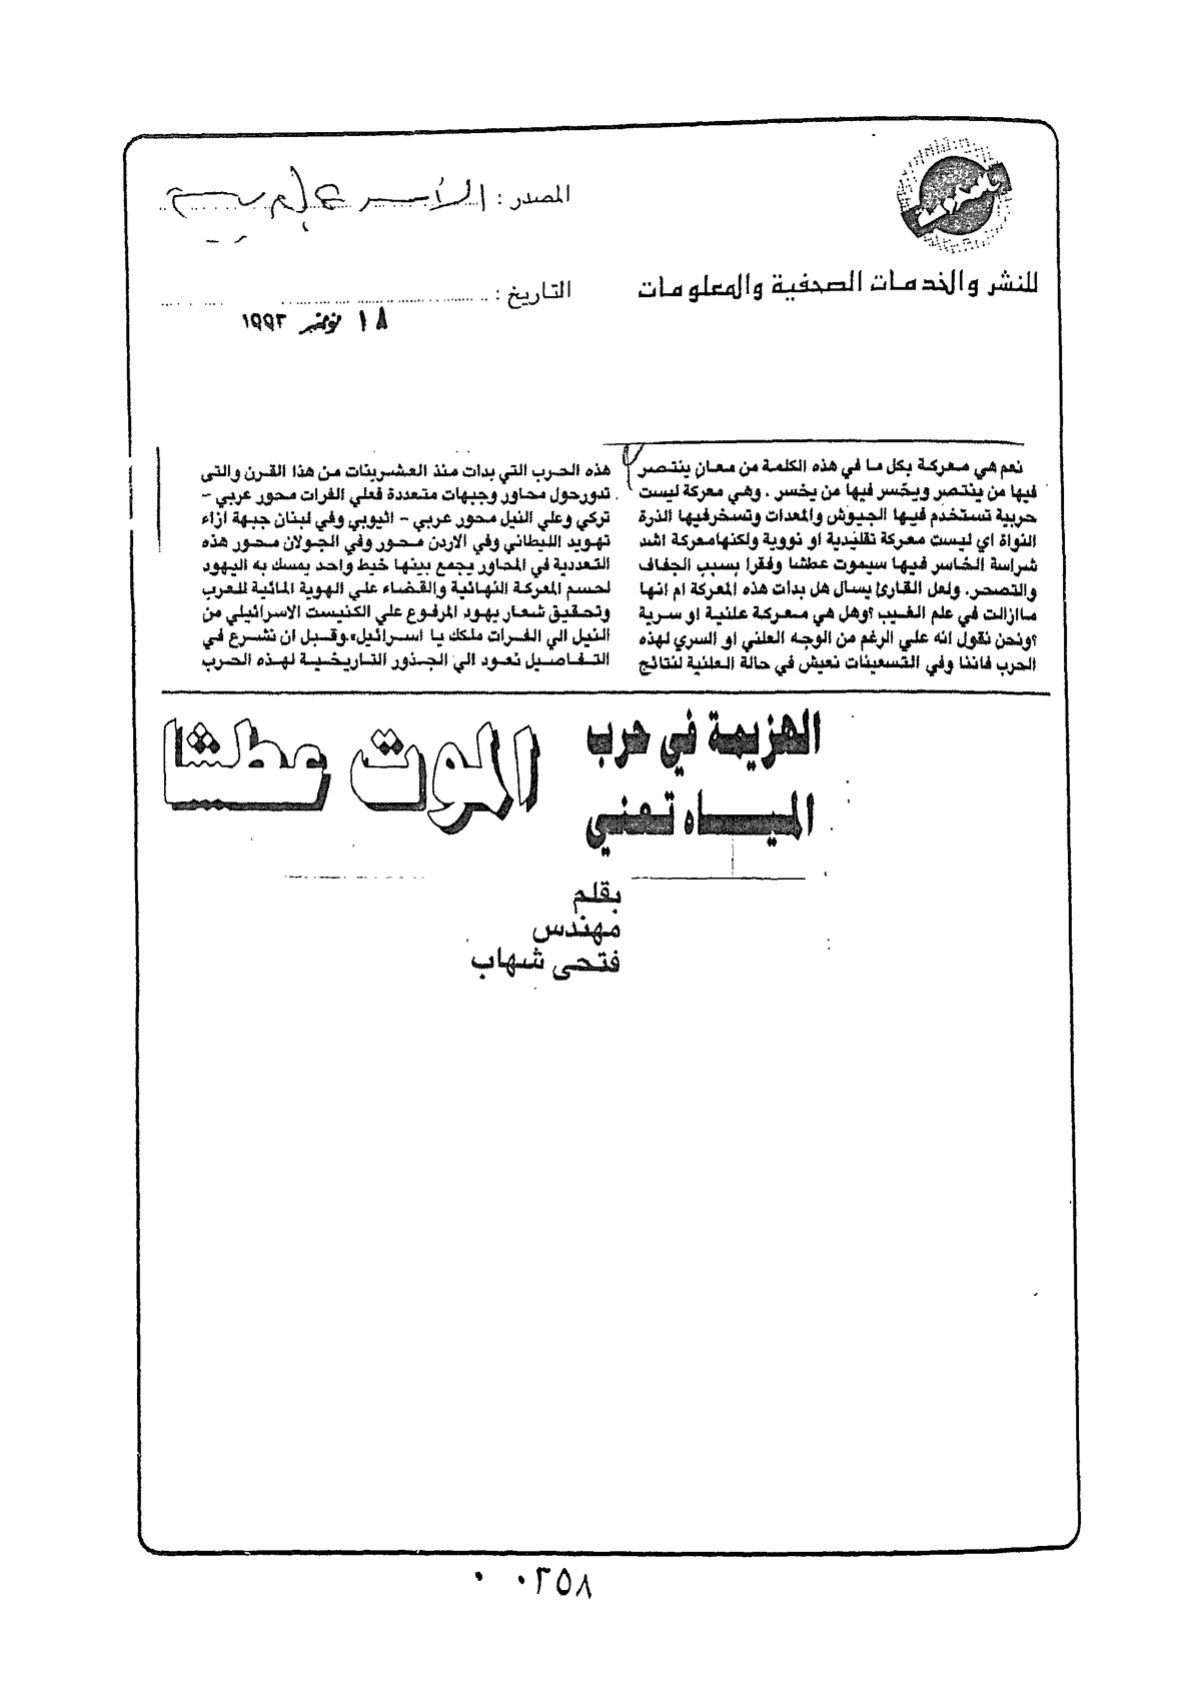 المصدر : الأسرة العربية
للنشر والخدمات الصحفية والمعلومات
التاريخ :
١٨ نوفمبر ١٩٩٣
نعم هي معركة بكل ما في هذه الكلمة من معان ينتصر
فيها من ينتصر ويخسر فيها من يخسر . وهي معركة ليست
حربية تستخدم فيها الجيوش والمعدات وتسخرفيها الذرة
النواة اي ليست معركة تقليدية او نووية ولكنهامعركة اشد
شراسة الخاسر فيها سيموت عطشا وفقرا بسبب الجفاف
والتصحر. ولعل القارئ يسال هل بدات هذه المعركة ام انها
مازالت في علم الغيب ؟وهل هي معركة علنية او سرية
؟ونحن نقول انه علي الرغم من الوجه العلني او السري لهذه
الحرب فاننا وفي التسعينات نعيش في حالة العلنية لنتائج
هذه الحرب التي بدات منذ العشرينات من هذا القرن والتى
تدورحول محاور وجبهات متعددة فعلي الفرات محور عربي –
تركي وعلي النيل محور عربي – اثيوبي وفي لبنان جبهة ازاء
تهويد الليطاني وفي الاردن محور وفي الجولان محور هذه
التعددية في المحاور يجمع بينها خيط واحد يمسك به اليهود
لحسم المعركة النهائية والقضاء علي الهوية المائية للعرب
وتحقيق شعار يهود المرفوع علي الكنيست الاسرائيلي من
النيل الي الفرات ملكك يا اسرائيل».وقبل ان نشرع في
التفاصيل نعود الي الجذور التاريخية لهذه الحرب
الهزيمة في حرب
المياه تعني
الموت عطشا
بقلم
مهندس
فتحى شهاب
٠ ٠٣٥٨